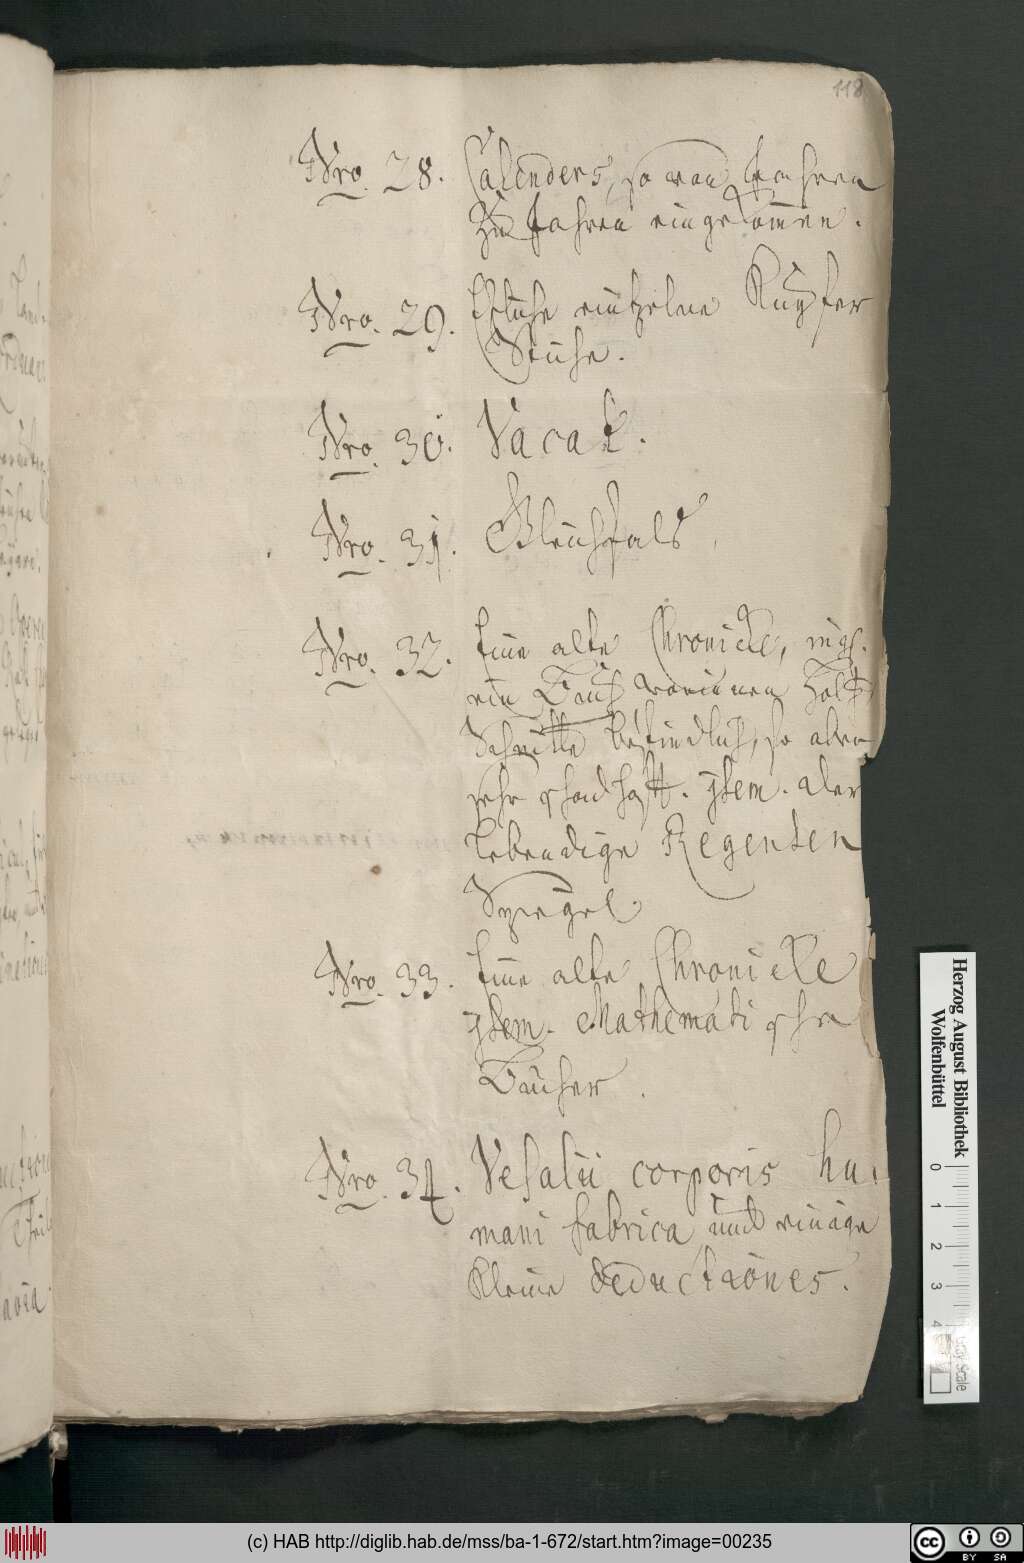 118
Nro. 28. Calenders, so von Jahren
zu Jahren eingekom̄en.
Nro. 29. Etliche eintzelne Kupfer
Stiche.
Nro. 30. Vacat.
Nro. 31. Gleichfals
Nro. 32. Eine alte Chronicke, ingl.
ein Buch worinnen Holtz
Schnitte befindlich, so aber
sehr schadhafft. Item. der
lebendige Regenten
Spiegel.
Nro. 33. Eine alte Chronicke
Item. Mathematische
Bücher.
Nro. 34. Vesalii corporis hu-
mani fabrica und einige
kleine deductiones.
Herzog August Bibliothek
Wolfenbüttel
0 1 2 3 4
Gray Scale
(c) HAB http://diglib.hab.de/mss/ba-1-672/start.htm?image=00235
CC BY SA